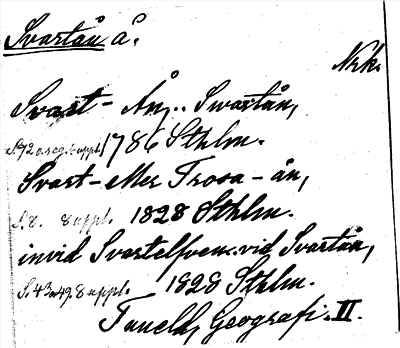 Svartån å.
Nrk.
Svart-Ån, Swartån,
S. 92 o. reg. 6 uppl. 1786 Sthlm.
Svart- eller Trosa-ån,
S. 8. 8 uppl. 1828 Sthlm.
invid Svartelfven vid Svartån,
S. 43, 49. 8 uppl. 1828 Sthlm.
Tuneld, Geografi. II.